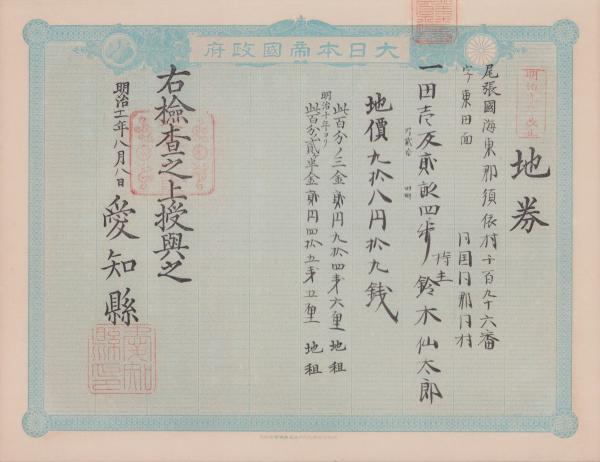 大日本帝國政府
地券
尾張國海東郡須依村千百九十六番
字東田面
同国同郡同村
一田壱反貳畝四歩
持主
鈴木仙太郎
地價九拾八円拾九銭
此百分ノ三金貳円九拾四銭六厘 地租
明治十年ヨリ
此百分ノ貳半金貳円四拾五銭五厘 地租
右檢査之上授與之
明治十一年八月八日
愛知縣